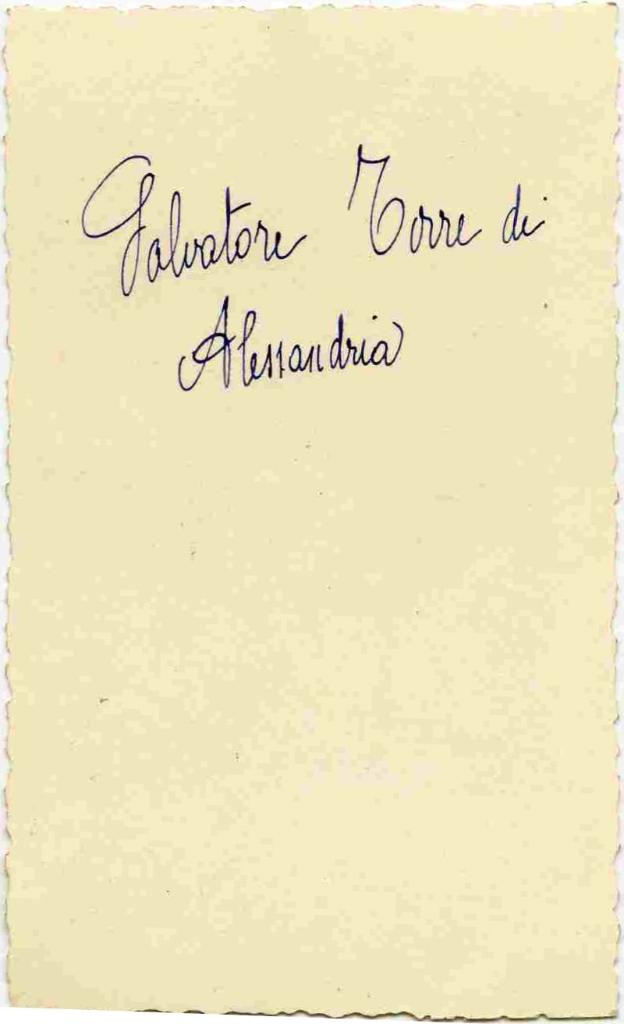 Salvatore Torre di
Alessandria